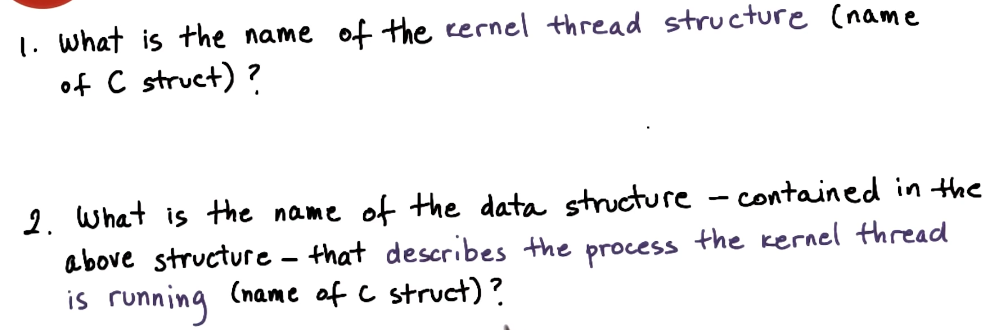 1. What is the name of the kernel thread structure (name
of C struct)?
2. What is the name of the data structure – contained in the
above structure – that describes the process the kernel thread
is running (name of c struct)?